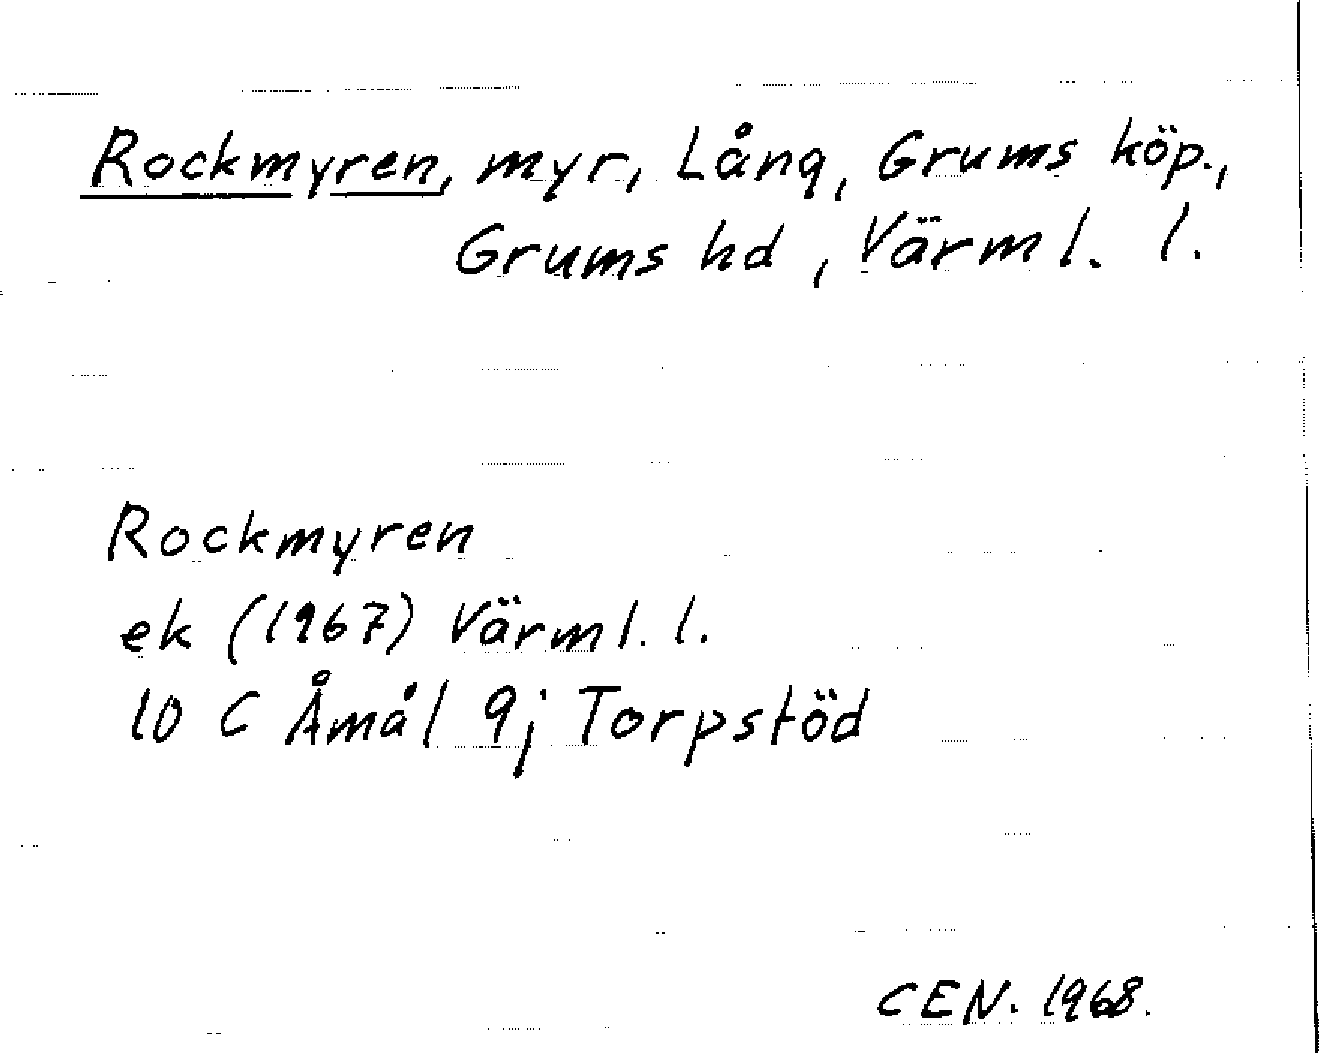 Rockmyren, myr, Lång, Grums köp.,
Grums hd, Värml. l.
Rockmyren
ek (1967) Värml. l.
10 C Åmål 9j Torpstöd
CEN. 1968.